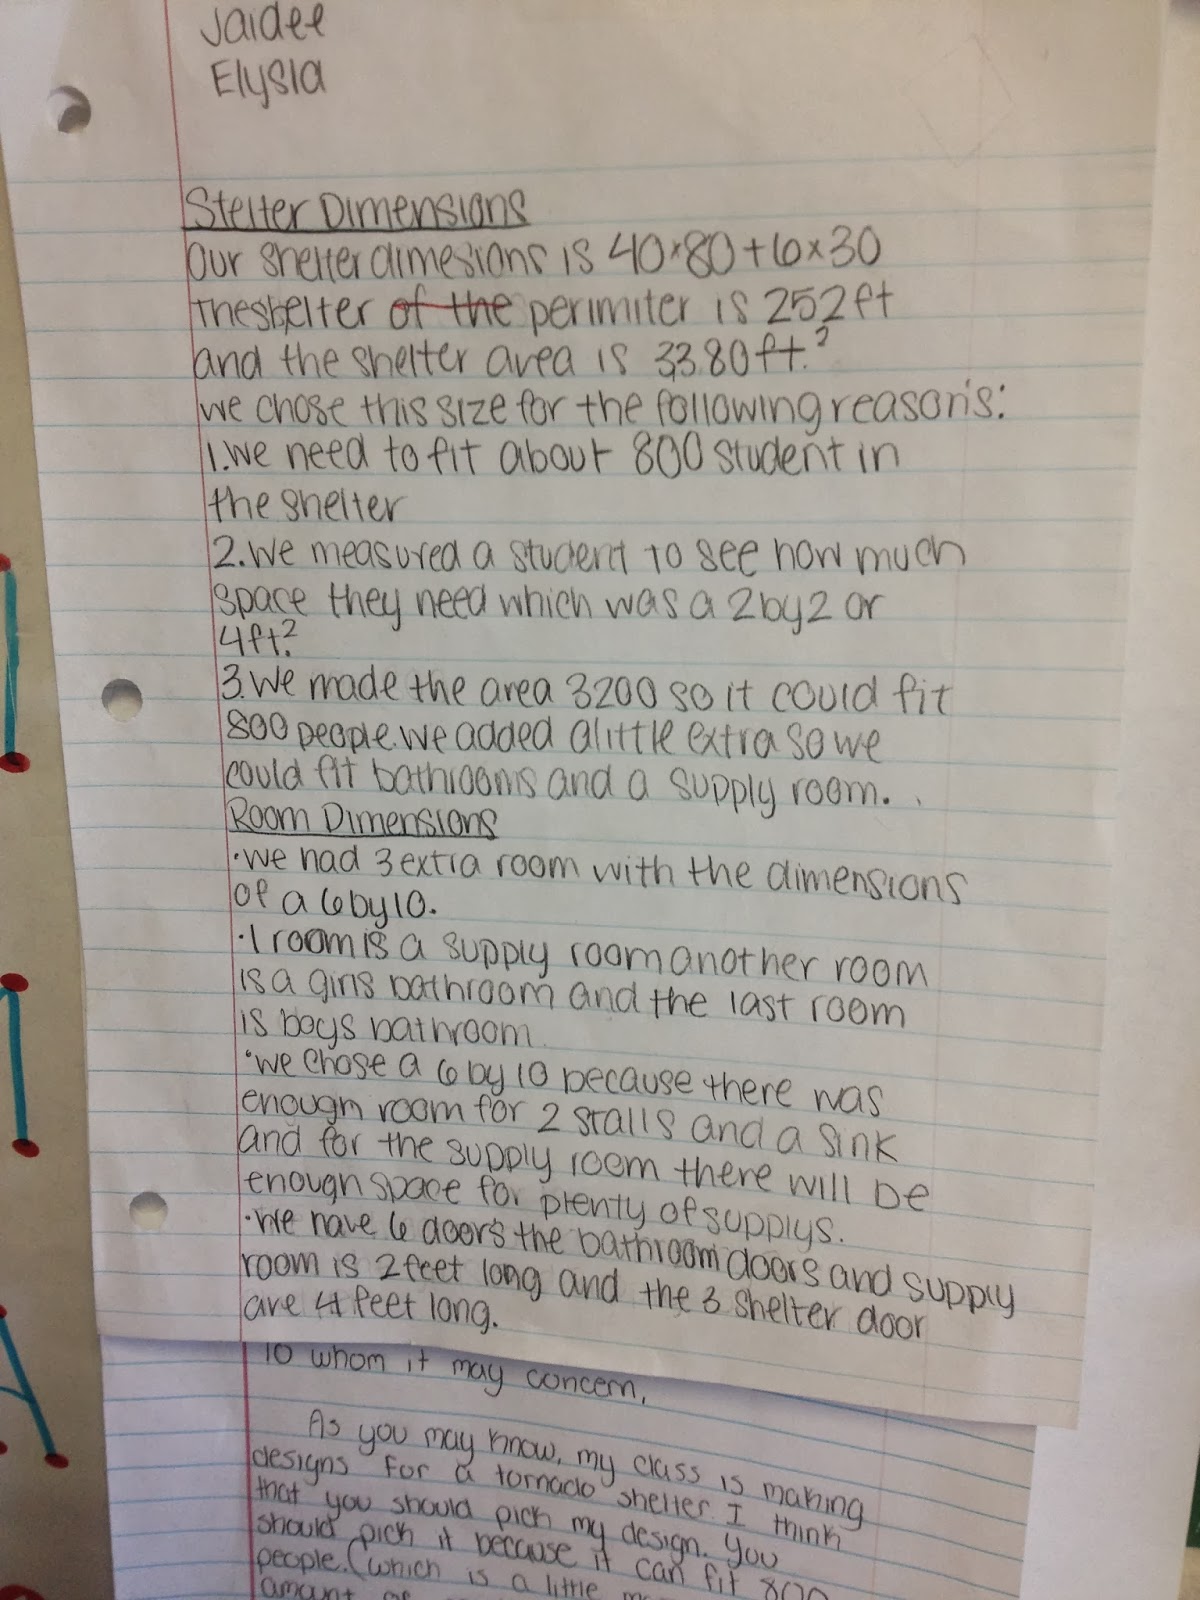 Jaidee
Elysia
Stelter Dimensions
Our shelter dimesions is 40×80+6×30
The shelter of the perimiter is 252ft
and the shelter area is 3,380ft.²
we chose this size for the following reason's:
1.We need to fit about 800 student in
the shelter
2.We measured a student to see how much
space they need which was a 2by2 or
4ft.²
3.We made the area 3200 so it could fit
800 people. we added alittle extra so we
could fit bathrooms and a supply room.
Room Dimensions
·we had 3 extra room with the dimensions
of a 6by10.
·1 room is a supply room another room
is a girls bathroom and the last room
is boys bathroom
·we chose a 6 by 10 because there was
enough room for 2 stalls and a sink
and for the supply room there will be
enough space for plenty of supplys.
·We have 6 doors the bathroom doors and supply
room is 2feet long and the 3 shelter door
are 4 feet long.
To whom it may concern,
As you may know, my class is making
designs for a tornado shelter. I think
that you should pick my design. You
should pick it because it can fit 800
people. (which is a little
amount of